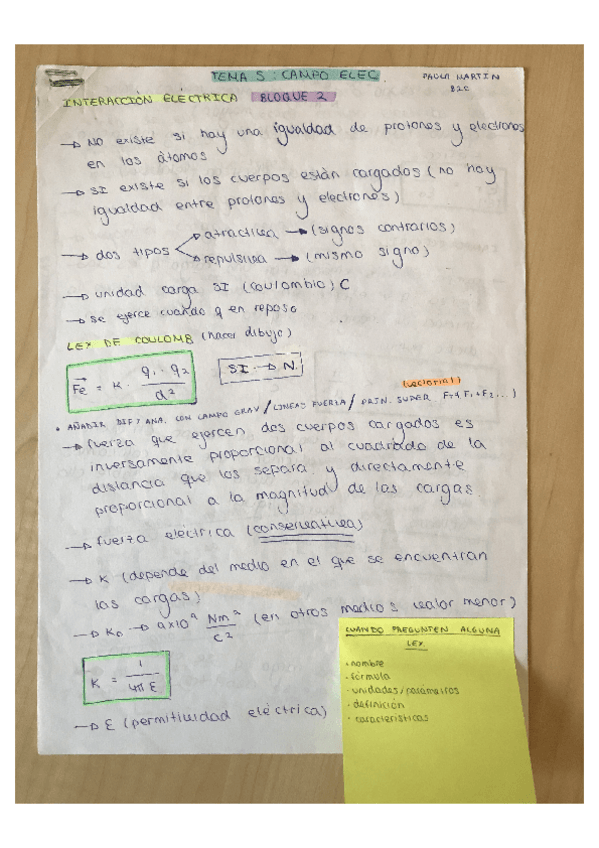 TEMA 5: CAMPO ELEC.
PAULA MARTIN
B2C
INTERACCIÓN ELÉCTRICA BLOQUE 2
→ NO existe si hay una igualdad de protones y electrones
en los átomos
→ SI existe si los cuerpos están cargados (no hay
igualdad entre protones y electrones)
→ dos tipos
atractiva → (signos contrarios)
repulsiva → (mismo signo)
→ unidad carga SI (coulombio) C
→ se ejerce cuando q en reposo
LEY DE COULOMB (hacer dibujo)
Fe = K · q₁ · q₂ / d²
SI → N.
(vectorial)
• AÑADIR DIF Y ANA. CON CAMPO GRAV / LINEAS FUERZA / PRIN. SUPER
→ fuerza que ejercen dos cuerpos cargados es
inversamente proporcional al cuadrado de la
distancia que los separa y directamente
proporcional a la magnitud de las cargas.
→ fuerza eléctrica (conservativa)
→ K (depende del medio en el que se encuentran
las cargas)
→ K₀ → 9x10⁹ Nm² / C² (en otros medios valor menor)
K = 1 / 4πε
→ ε (permitividad eléctrica)
CUANDO PREGUNTEN ALGUNA
LEY
· nombre
· fórmula
· unidades/parámetros
· definición
· características